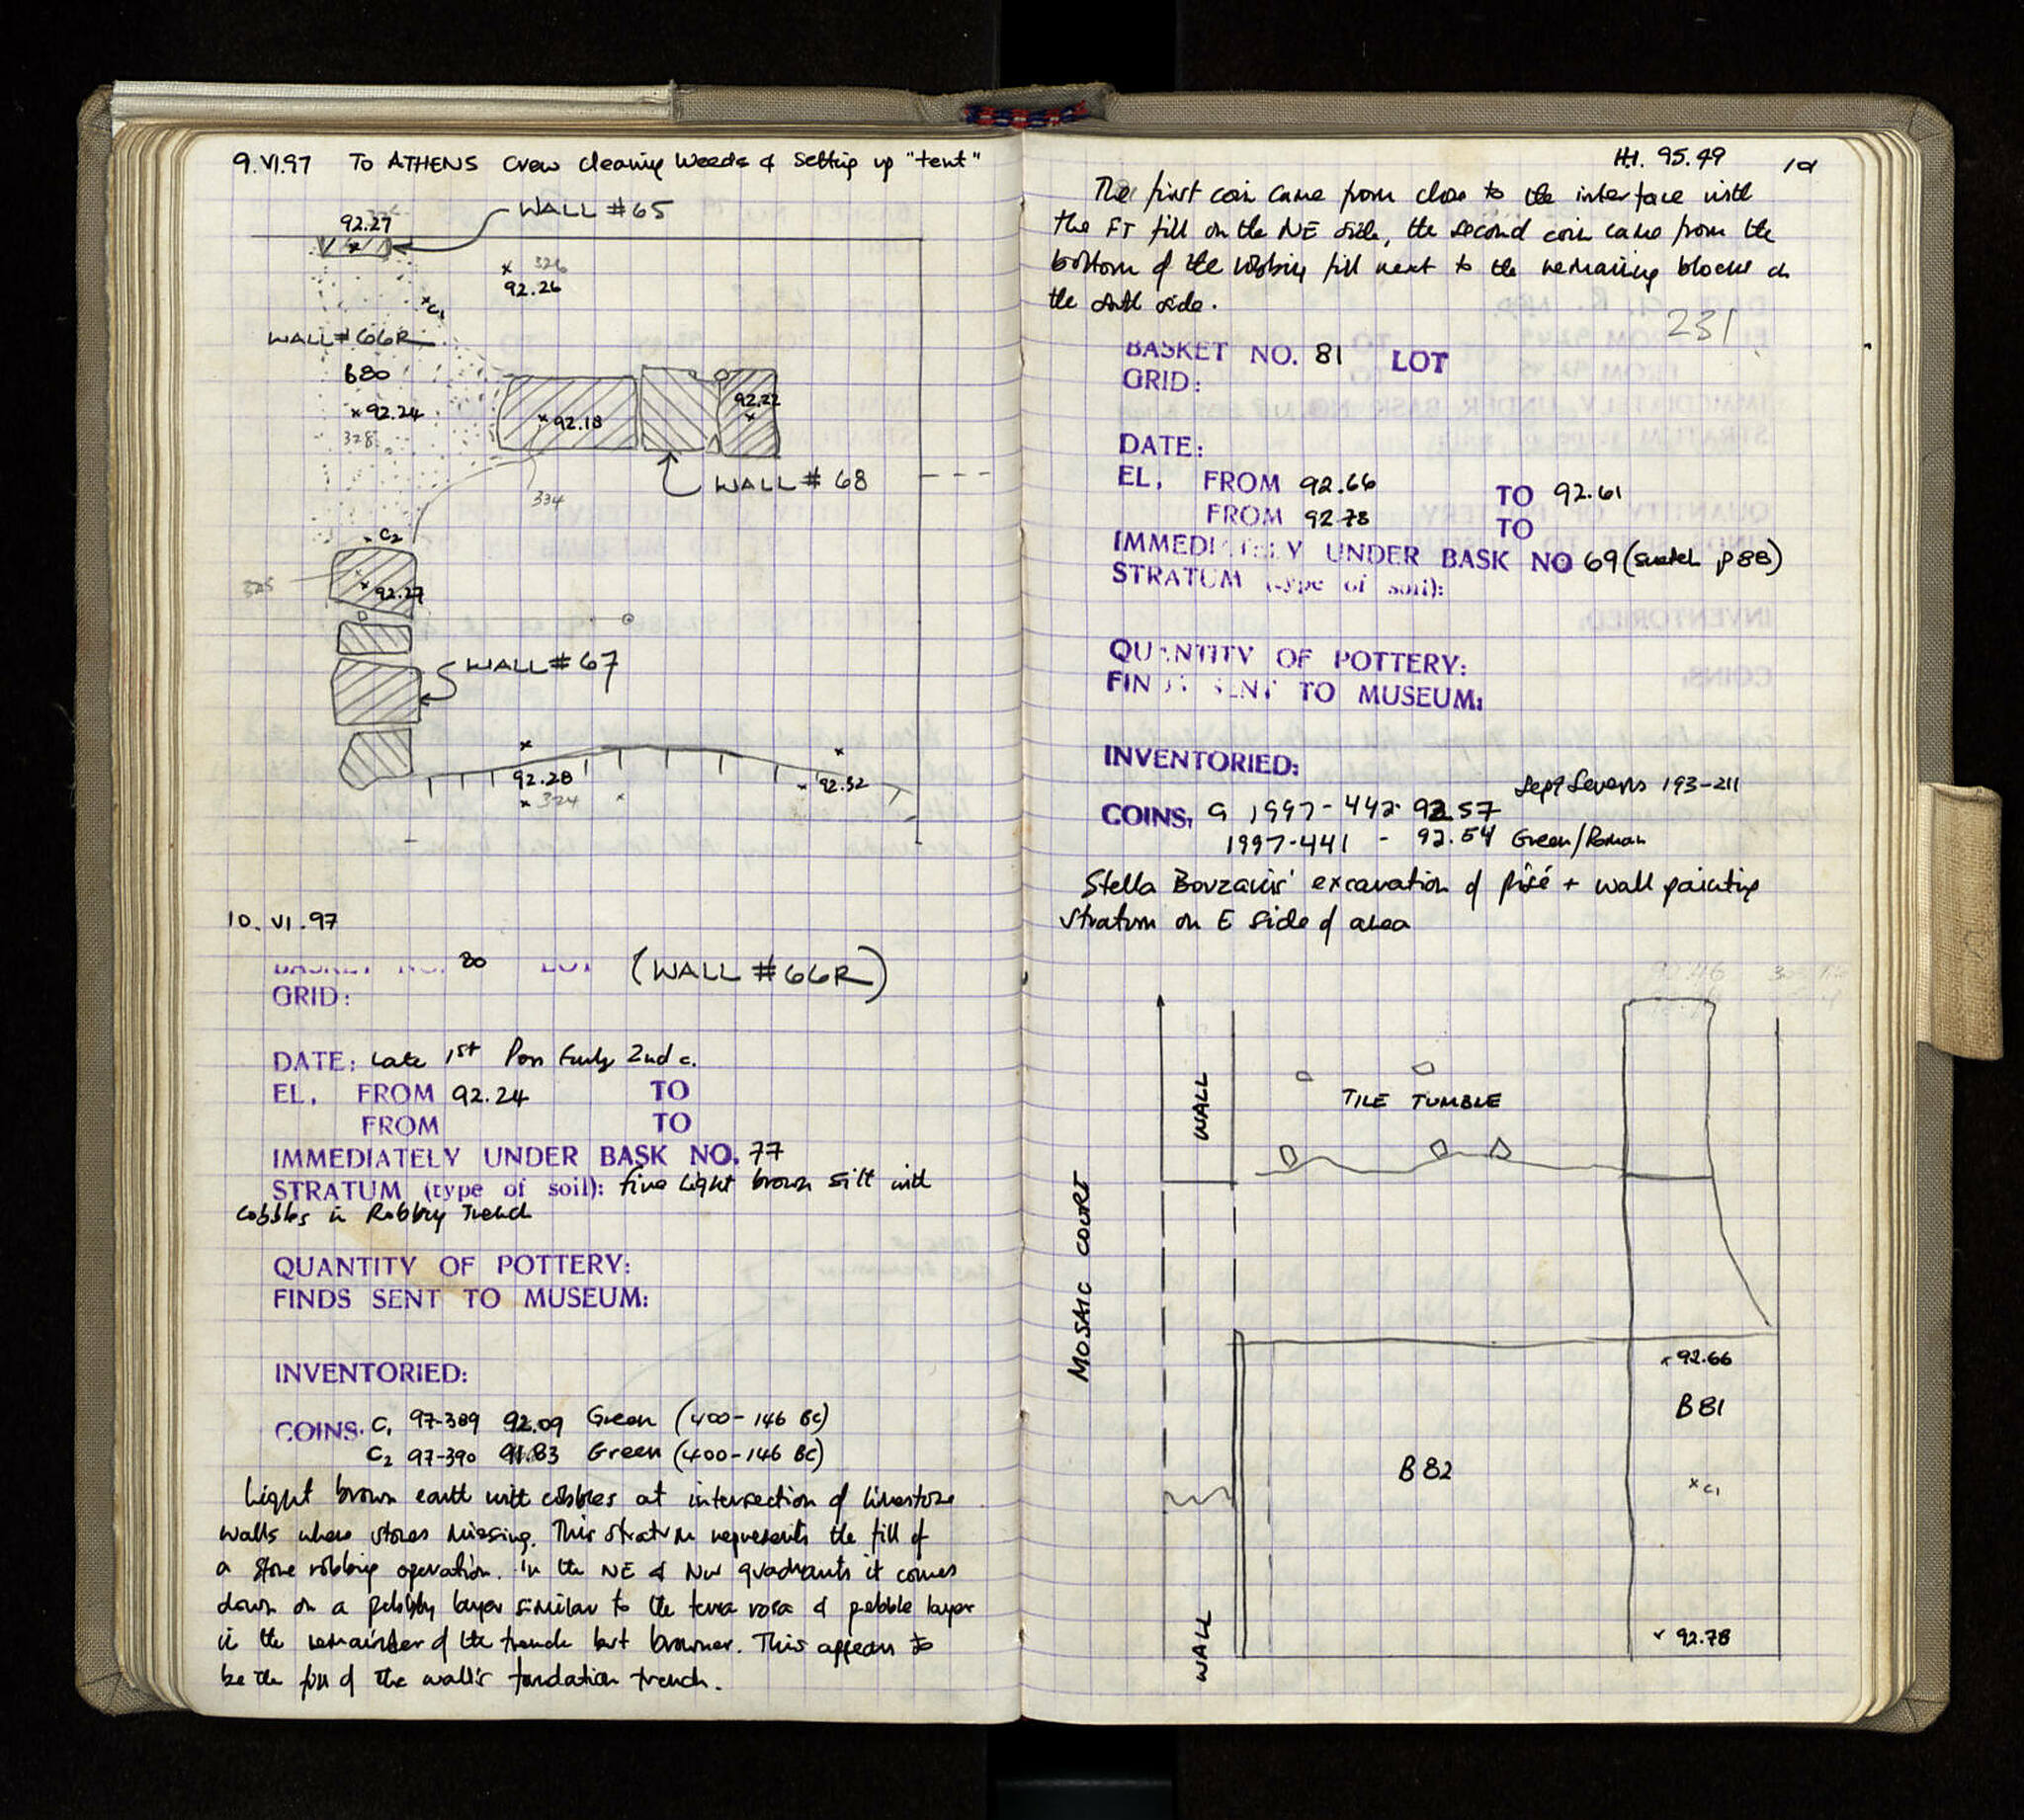 9.VI.97 TO ATHENS Crew cleaning Weeds & Setting up "tent"
WALL #65
92.27
326
92.26
C1
WALL #66R
B80
92.24
328
92.18
92.22
WALL # 68
334
C2
325
92.27
WALL #67
92.28
324
92.32
10.VI.97
80 LOT (WALL #66R)
GRID:
DATE: Late 1st Poss Early 2nd c.
EL. FROM 92.24 TO
FROM TO
IMMEDIATELY UNDER BASK NO. 77
STRATUM (type of soil): fine light brown silt with
cobbles in Robbing Trench
QUANTITY OF POTTERY:
FINDS SENT TO MUSEUM:
INVENTORIED:
COINS. C1 97-389 92.09 Green (400-146 BC)
C2 97-390 91.83 Green (400-146 BC)
Light brown earth with cobbles at intersection of limestone
walls where stones missing. This stratum represents the fill of
a stone robbing operation. in the NE & NW quadrants it comes
down on a pebbly layer similar to the terra rosa & pebble layer
in the remainder of the trench but browner. This appears to
be the fill of the wall's foundation trench.
H.I. 95.49
The first coin came from close to the interface with
the FT fill on the NE side, the second coin came from the
bottom of the robbing fill next to the remaining blocks on
the south side.
231
BASKET NO. 81 LOT
GRID:
DATE:
EL. FROM 92.66 TO 92.61
FROM 92.78 TO
IMMEDIATELY UNDER BASK NO 69 (sketch p 88)
STRATUM (type of soil):
QUANTITY OF POTTERY:
FINDS SENT TO MUSEUM:
INVENTORIED:
Sept Severus 193-211
COINS, 9 1997-442- 92.57
1997-441 - 92.54 Green/Roman
Stella Bouzakis' excavation of pisé + wall painting
stratum on E side of area
WALL
TILE TUMBLE
MOSAIC COURT
92.66
B81
B82
C1
WALL
92.78